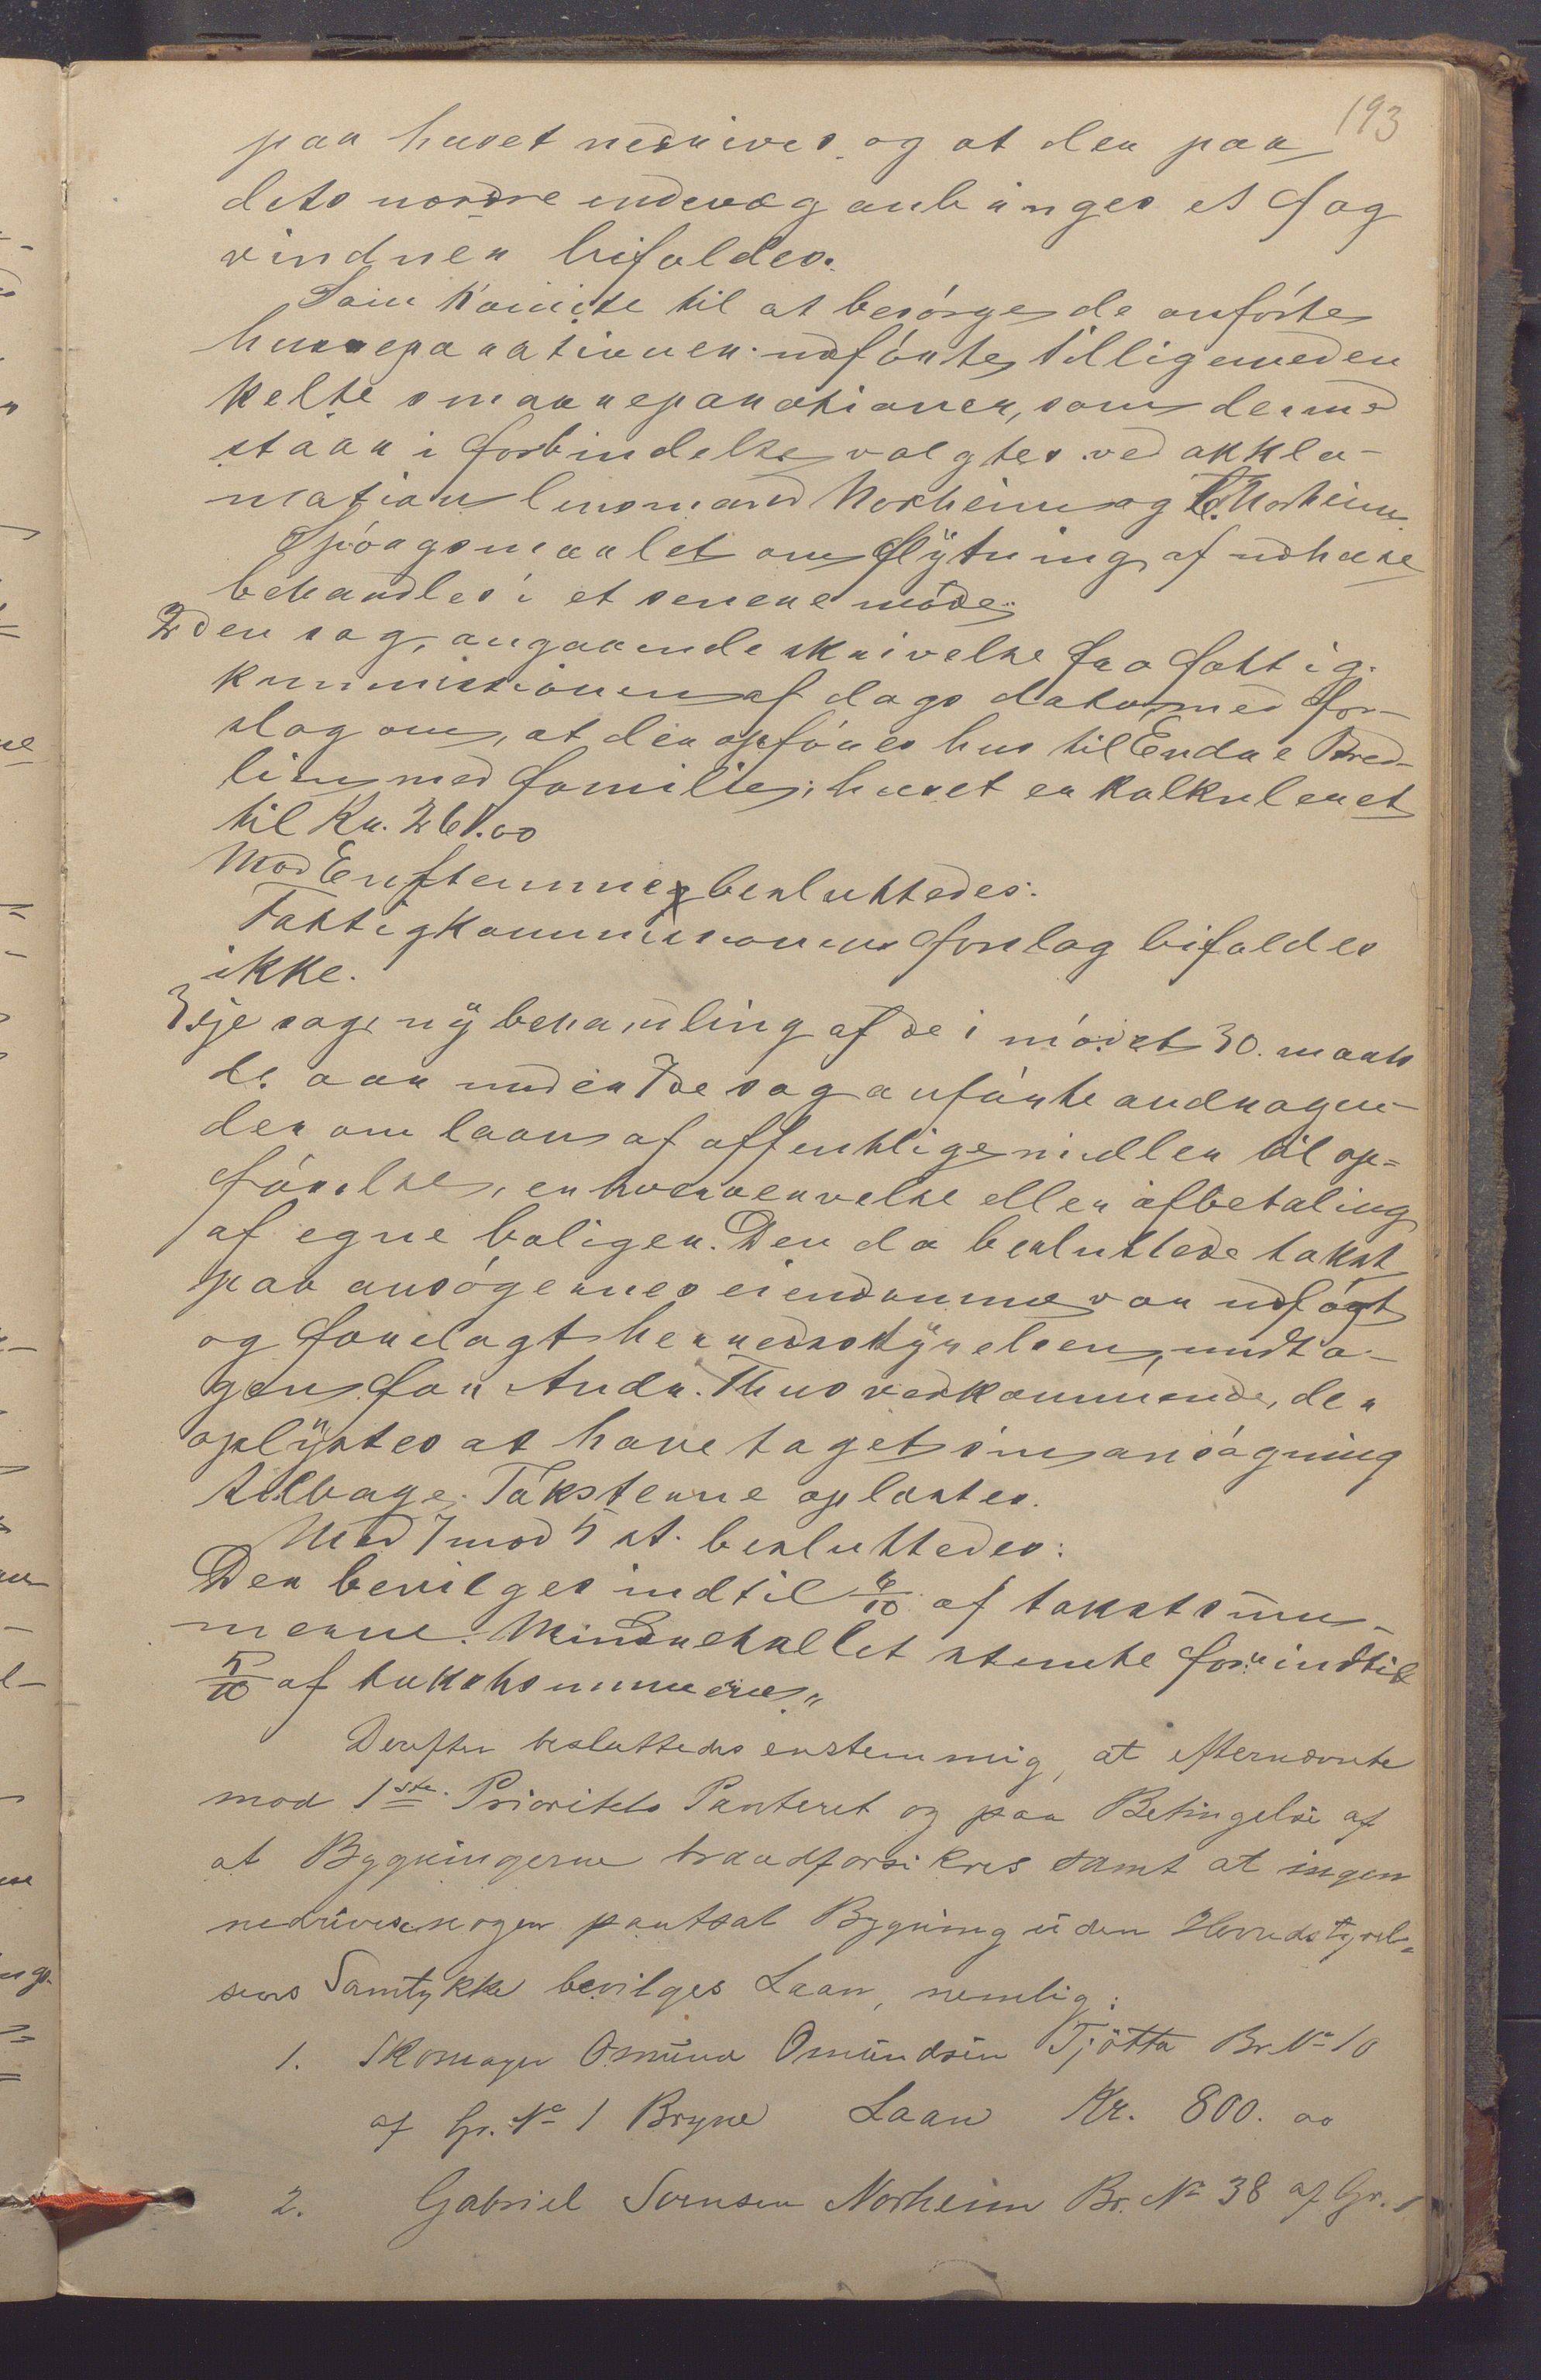 193
paa huset nedrives og at der paa
dets nordre endevæg anbringes et Fag
vinduer bifaldes.
Som komite til at besörge de anförte
husreparationer udförte tilligemed en
kelte smaareparationer, som dermed
staar i forbindelse valgtes ved akkla-
mation lensmand Norheim og E. Norheim.
Spörgsmaalet om flytning af udhuse
behandles i et senere möde.
2den sag, angaaende skrivelse fra fattig-
kommissionen af dags dato med for-
slag om, at der opföres hus til Endre Bred-
lien med familie; huset er kalkuleret
til Kr. 261.00
Mod En stemme besluttedes:
Fattigkommissionens forslag bifaldes
ikke.
3dje sag, ny behandling af de i mödet 30. marts
d. aar under 7de sag anförte andragen-
der om laan af offentlige midler til op-
förelse, erhververvelse eller afbetaling
af egne boliger. Den da besluttede takst
paa ansögernes eiendomme var udfört
og forelagt herredsstyrelsen, undta-
gen for Andr. Thus vedkommende, der
oplystes at have taget sin ansögning
tilbage. Taksterne oplæstes.
Med 7 mod 5 st. besluttedes:
Der bevilges indtil 6/10 af takstsum-
merne. Mindretallet stemte for „indtil
5/10 af takstsummerne."
Derefter besluttedes enstemmig, at efternævnte
mod 1ste Prioritets Panteret og paa Betingelse af
at Bygningerne brandforsikres samt at ingen
nedriver nogen pantsat Bygning uden Herredstyrel-
sens Samtykke bevilges Laan, nemlig:
1. Skomager Omund Omundsen Tjötta Br. No 10
af Gr. No 1 Bryne Laan Kr. 800. 00
2. Gabriel Sörensen Norheim Br. No 38 af Gr. 1